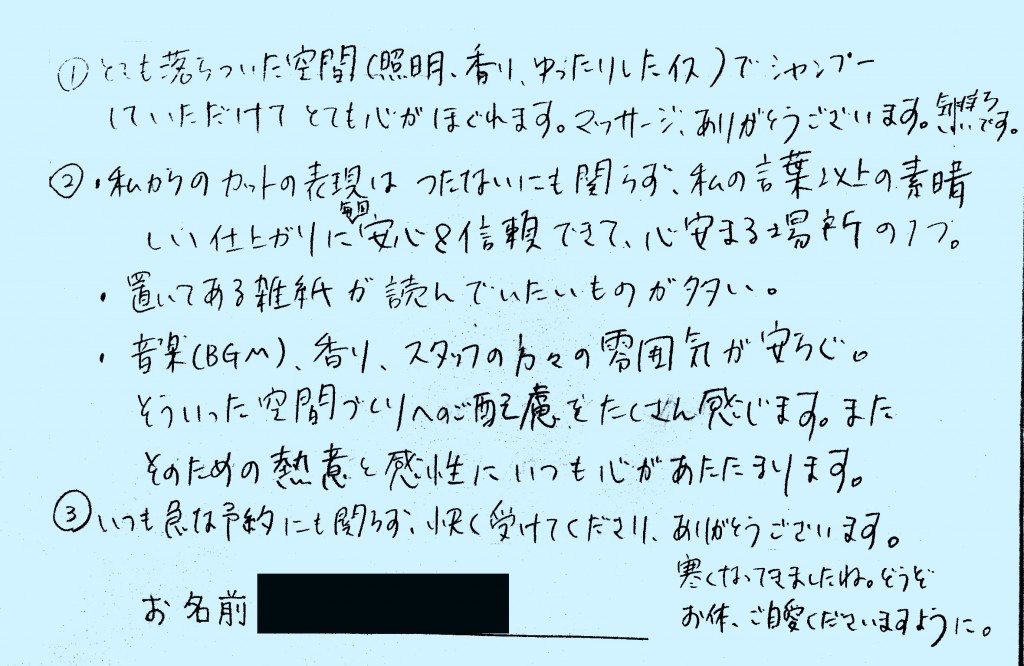 ① とても落ちついた空間(照明、香り、ゆったりしたイス)でシャンプー
していただけてとても心がほぐれます。マッサージ、ありがとうございます。気持ちいいです。
② ・私からのカットの表現はつたないにも関らず、私の言葉以上の素晴
しい仕上がりに毎回安心を信頼できて、心安まる場所の1つ。
・置いてある雑紙が読んでいたいものが多い。
・音楽(BGM)、香り、スタッフの方々の雰囲気が安らぐ。
そういった空間づくりへのご配慮をたくさん感じます。また
そのための熱意と感性にいつも心があたたまります。
③ いつも急な予約にも関らず、快く受けてくださり、ありがとうございます。
寒くなってきましたね。どうぞ
お体、ご自愛くださいますように。
お名前